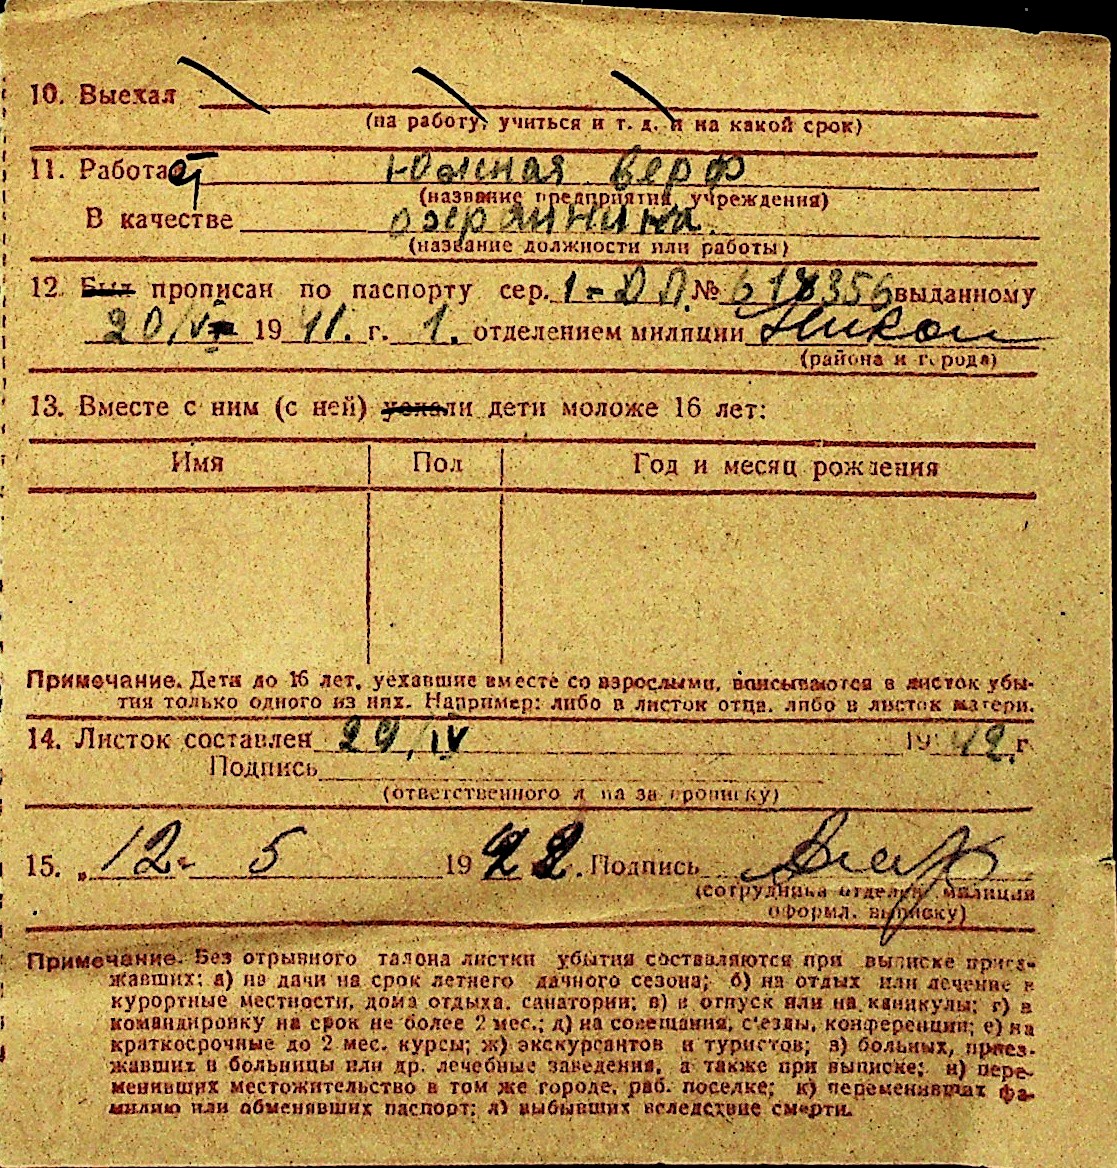 10. Выехал
(на работу, учиться и т. д. и на какой срок)
11. Работает Южная верф
(название предприятия, учреждения)
В качестве охранника.
(название должности или работы)
12. Был прописан по паспорту сер. 1-ДД № 618356 выданному
20/V 1941. г. 1. отделением милиции Никол
(района и города)
13. Вместе с ним (с ней) уехали дети моложе 16 лет:
Имя Пол Год и месяц рождения
Примечание. Дети до 16 лет, уехавшие вместе со взрослыми, вписываются в листок убы-
тия только одного из них. Например: либо в листок отца, либо в листок матери.
14. Листок составлен 29/IV 1942. г.
Подпись
(ответственного лица за прописку)
15. „12- 5 1942. Подпись
(сотрудника отделен. милиции
оформл. выписку)
Примечание. Без отрывного талона листки убытия составляются при выписке приез-
жавших: а) на дачи на срок летнего дачного сезона; б) на отдых или лечение в
курортные местности, дома отдыха, санатории; в) в отпуск или на каникулы; г) в
командировку на срок не более 2 мес.; д) на совещания, съезды, конференции; е) на
краткосрочные до 2 мес. курсы; ж) экскурсантов и туристов; з) больных, приез-
жавших в больницы или др. лечебные заведения, а также при выписке; и) пере-
менивших местожительство в том же городе, раб. поселке; к) переменивших фа-
милию или обменявших паспорт; л) выбывших вследствие смерти.